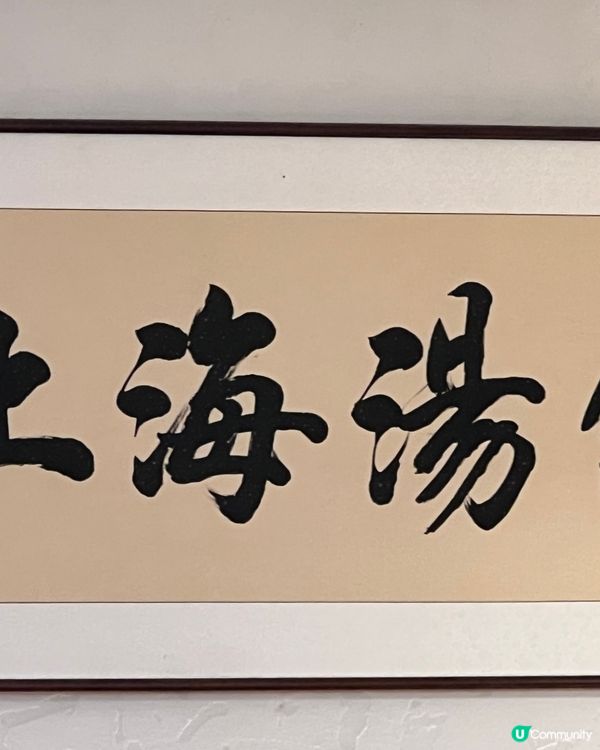 上海湯
U Community